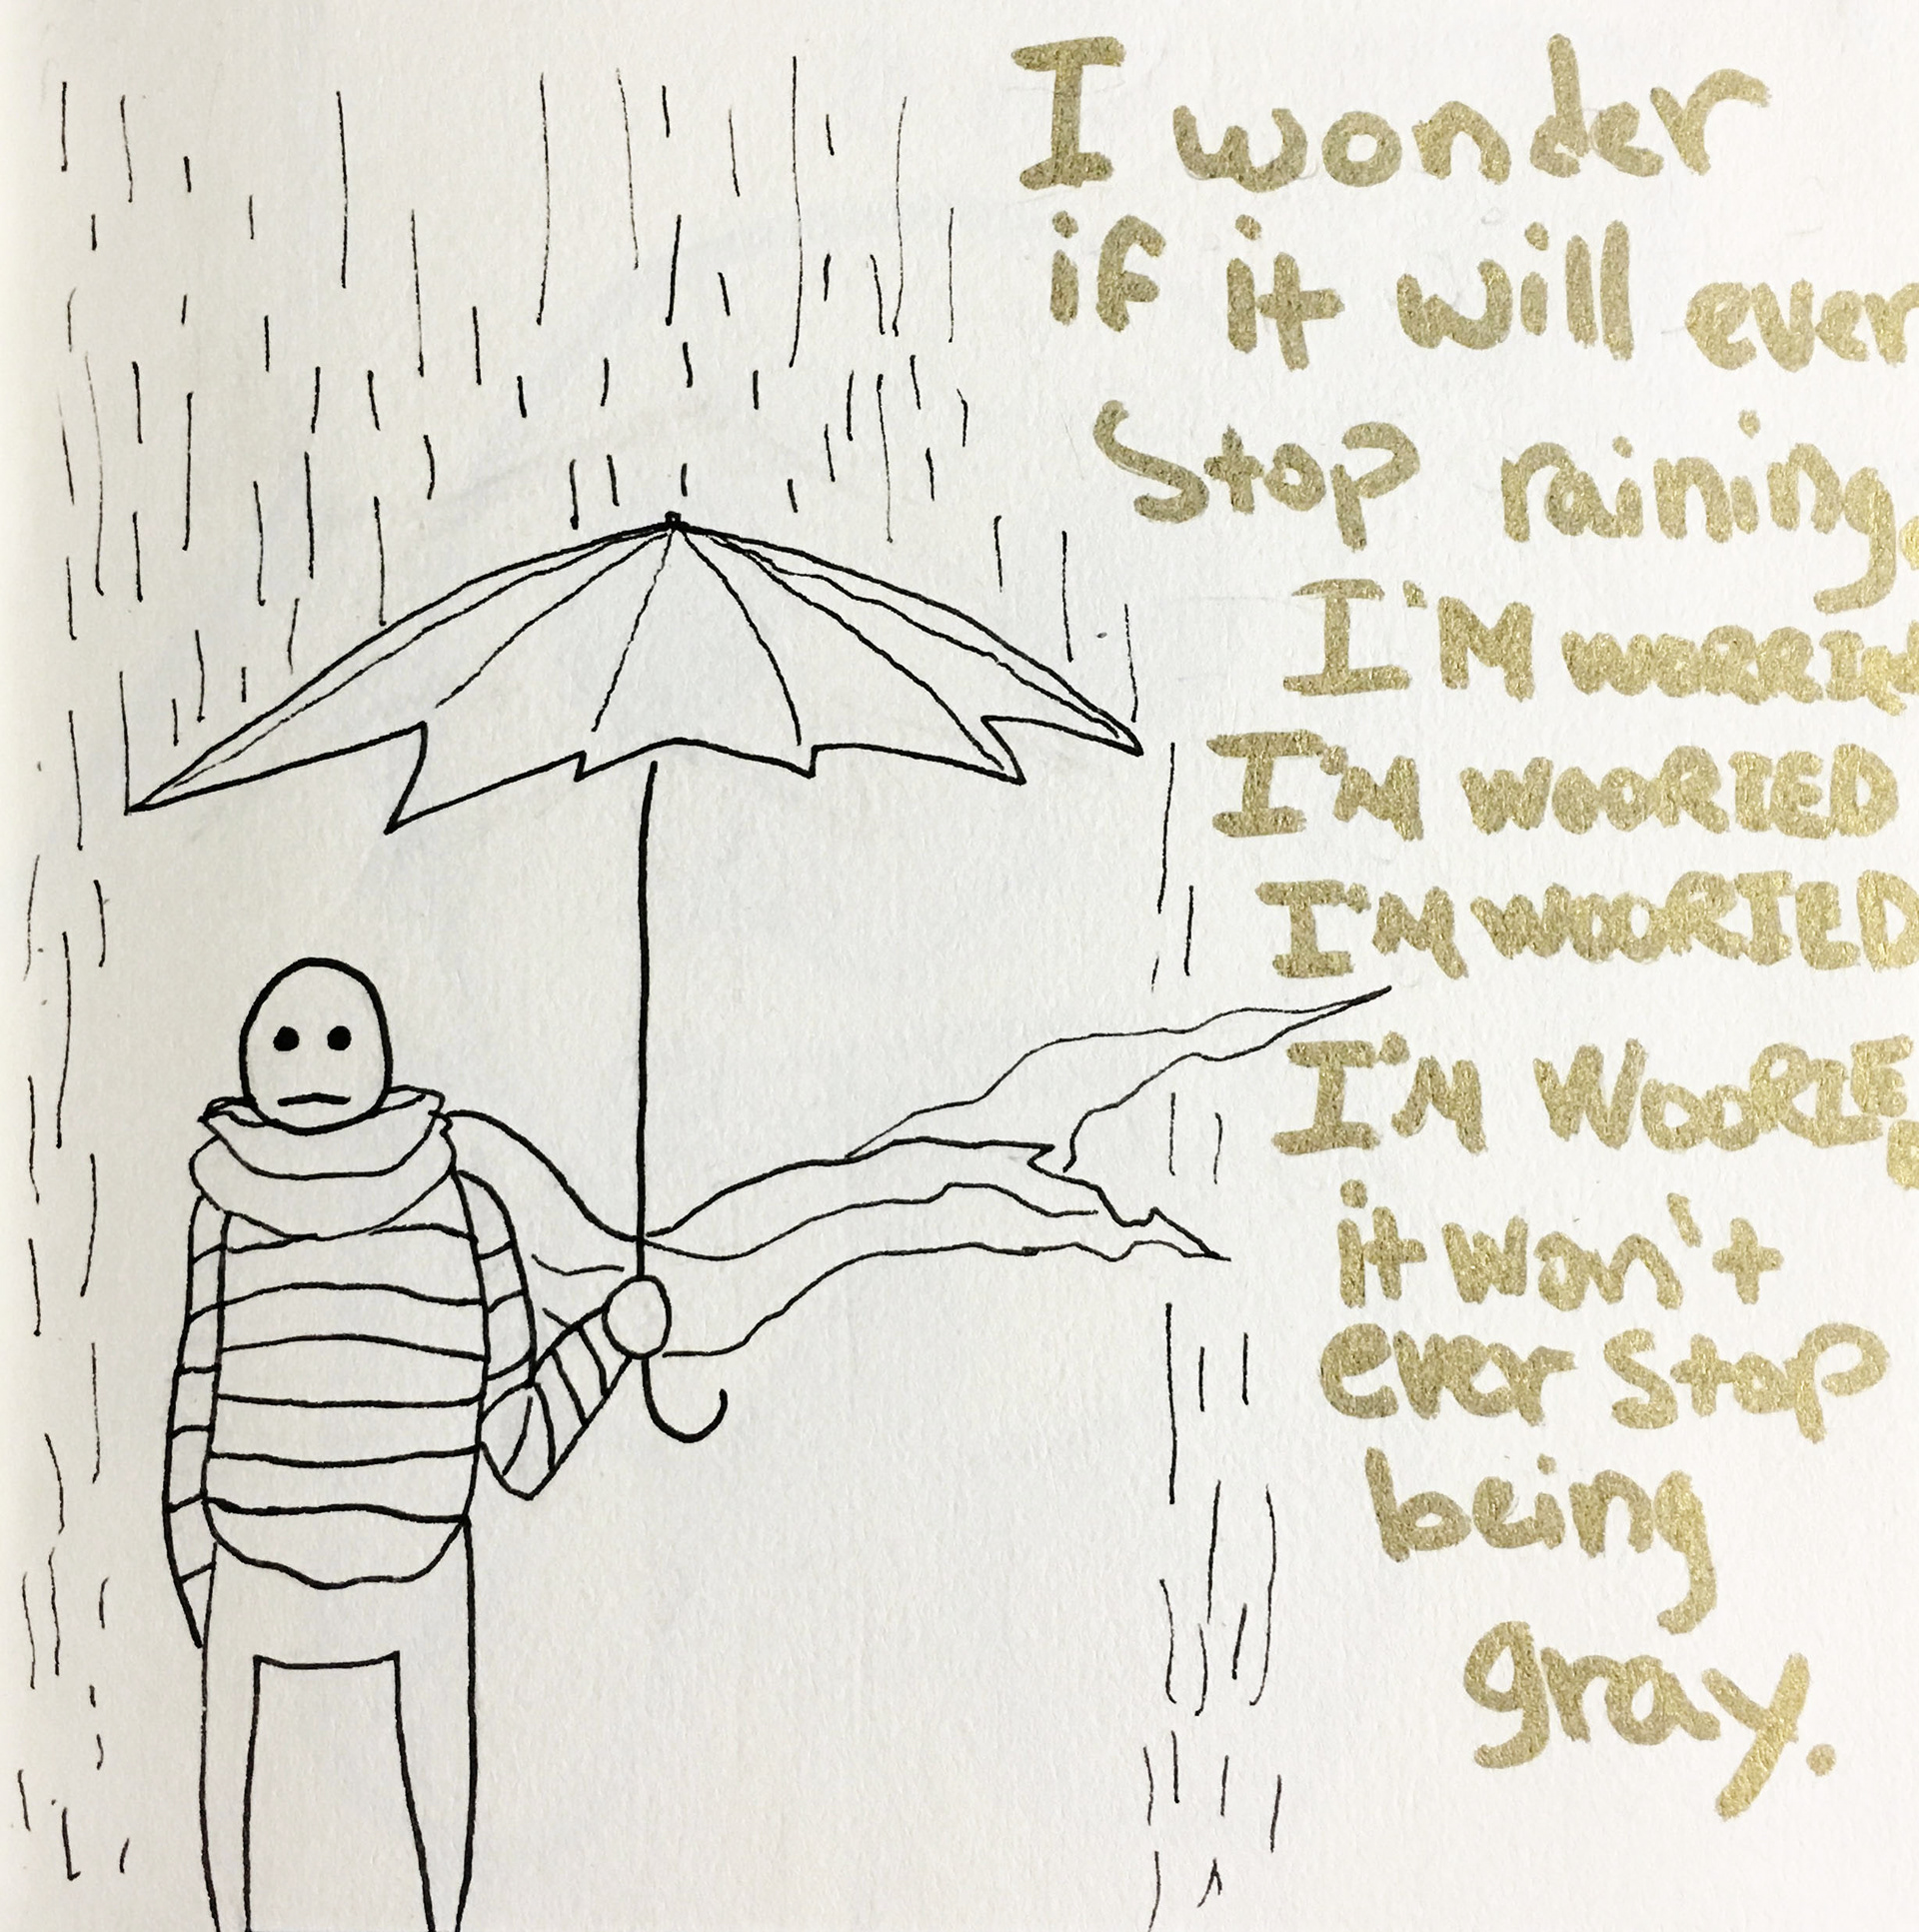 I wonder
if it will ever
Stop raining.
I'M WORRIN
I'M WOORIED
I'M WOORIED
I'M WOORIE
it won't
ever stop
being
gray.